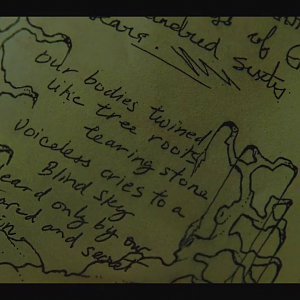 of
hundred sixty
years.
Our bodies twined
like tree roots
tearing stone
Voiceless cries to a
Blind sky
heard only by our
and secret